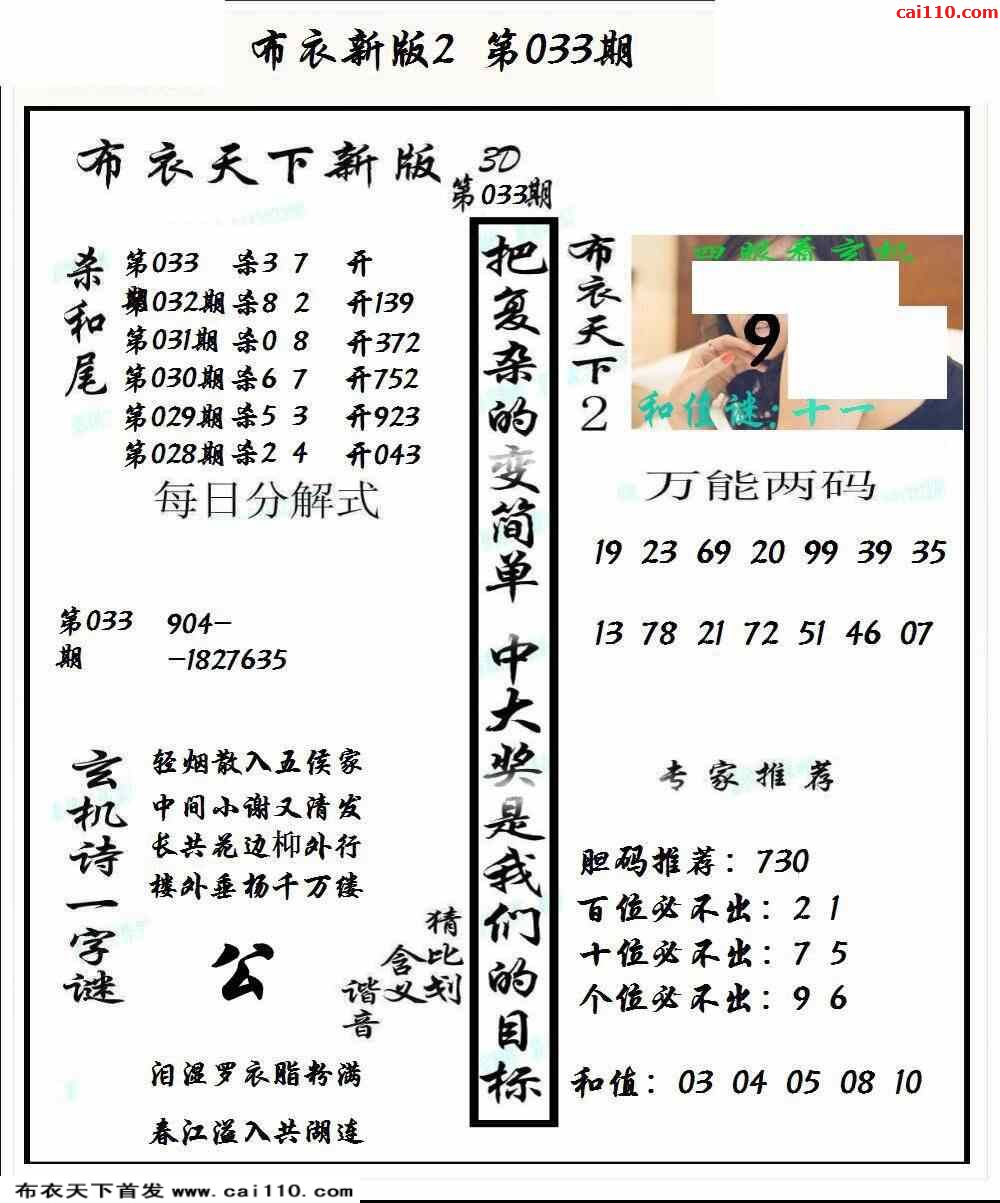 cai110.com
布衣新版2 第033期
布衣天下新版 3D
第033期
杀和尾
第033期 杀3 7 开
第032期 杀8 2 开139
第031期 杀0 8 开372
第030期 杀6 7 开752
第029期 杀5 3 开923
第028期 杀2 4 开043
每日分解式
第033期 904-
-1827635
玄机诗一字谜
轻烟散入五侯家
中间小谢又清发
长共花边柳外行
楼外垂杨千万缕
公
猜比划
含义
谐音
泪湿罗衣脂粉满
春江溢入共湖连
把复杂的变简单 中大奖是我们的目标
布衣天下2
四眼看玄机
9
和值谜:十一
万能两码
19 23 69 20 99 39 35
13 78 21 72 51 46 07
专家推荐
胆码推荐：730
百位必不出：2 1
十位必不出：7 5
个位必不出：9 6
和值：03 04 05 08 10
布衣天下首发 www.cai110.com